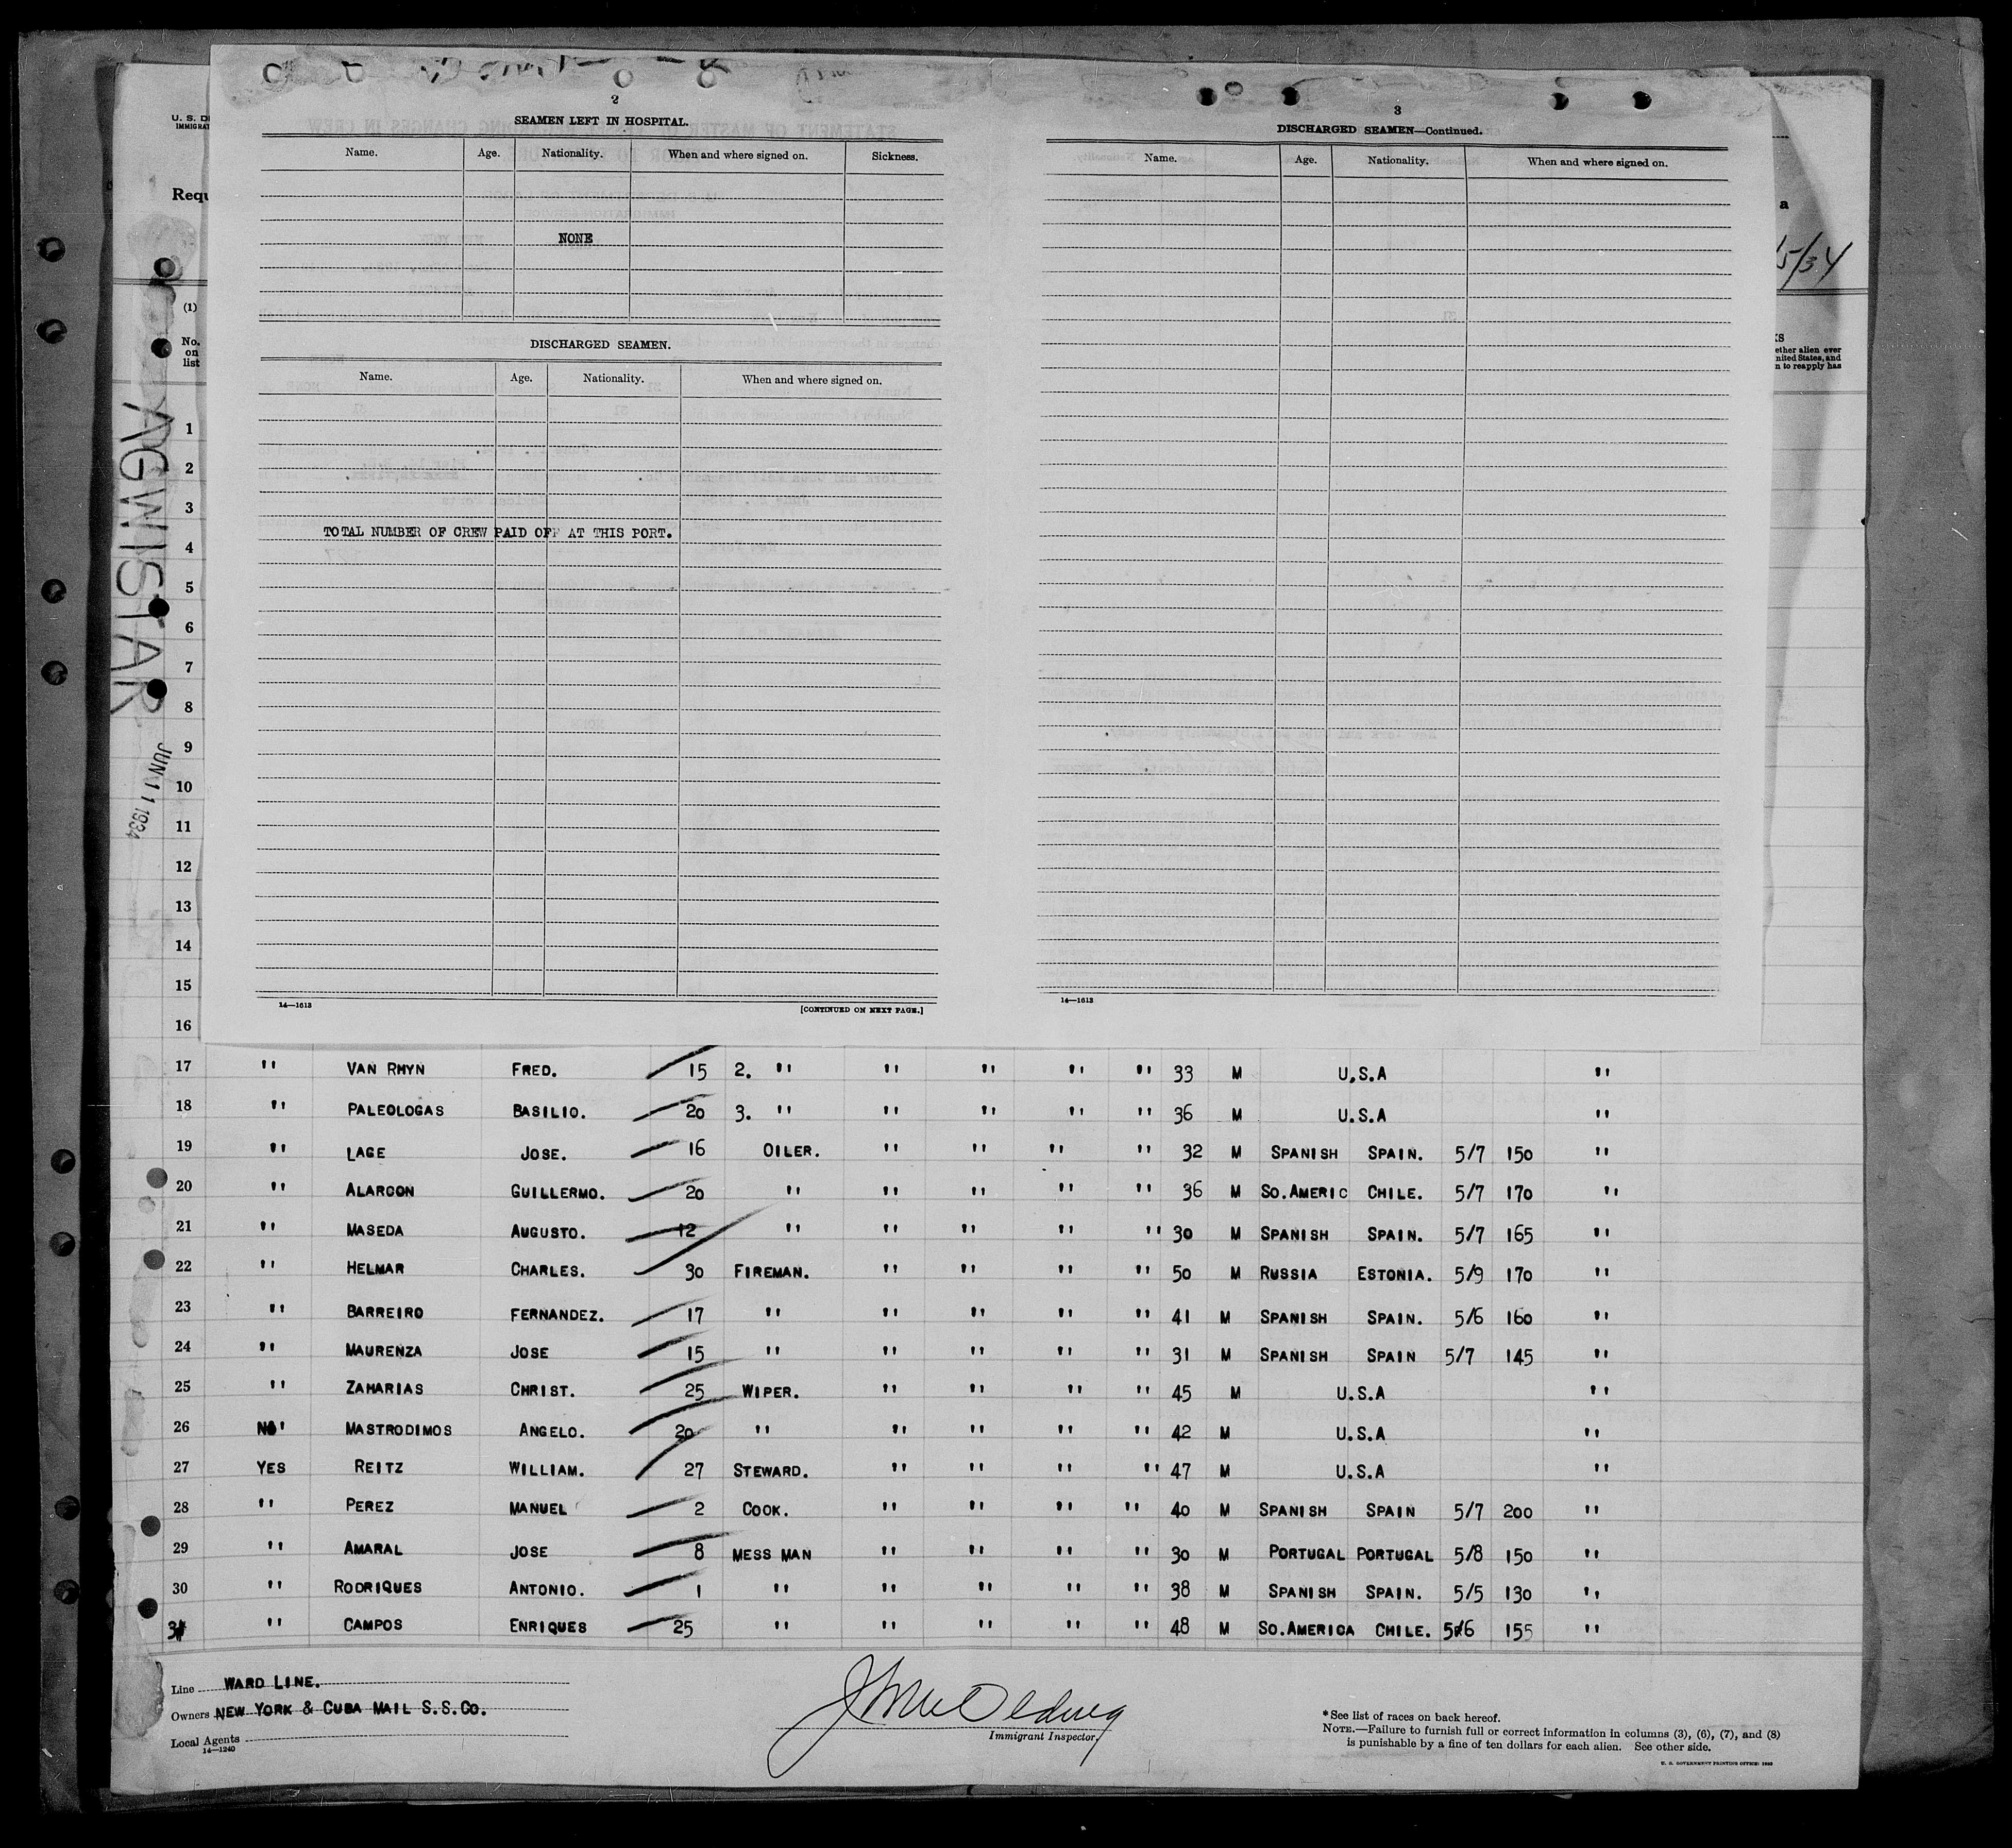 2
SEAMEN LEFT IN HOSPITAL.
Name. Age. Nationality. When and where signed on. Sickness.
NONE
DISCHARGED SEAMEN.
Name. Age. Nationality. When and where signed on.
TOTAL NUMBER OF CREW PAID OFF AT THIS PORT.
14—1613 [CONTINUED ON NEXT PAGE.]
3
DISCHARGED SEAMEN—Continued.
Name. Age. Nationality. When and where signed on.
14—1613
U. S. D
IMMIGRAT
Requ
(1)
No.
on
list
a
5/34
KS
ether alien ever
nited States, and
n to reapply has
AGWISTAR
JUN 11 1934
1
2
3
4
5
6
7
8
9
10
11
12
13
14
15
16
17 " VAN RHYN FRED. 15 2. " " " " " 33 M U.S.A "
18 " PALEOLOGAS BASILIO. 20 3. " " " " " 36 M U.S.A "
19 " LAGE JOSE. 16 OILER. " " " " 32 M SPANISH SPAIN. 5/7 150 "
20 " ALARCON GUILLERMO. 20 " " " " " 36 M SO.AMERIC CHILE. 5/7 170 "
21 " MASEDA AUGUSTO. 12 " " " " " 30 M SPANISH SPAIN. 5/7 165 "
22 " HELMAR CHARLES. 30 FIREMAN. " " " " 50 M RUSSIA ESTONIA. 5/9 170 "
23 " BARREIRO FERNANDEZ. 17 " " " " " 41 M SPANISH SPAIN. 5/6 160 "
24 " MAURENZA JOSE 15 " " " " " 31 M SPANISH SPAIN 5/7 145 "
25 " ZAHARIAS CHRIST. 25 WIPER. " " " " 45 M U.S.A "
26 NO" MASTRODIMOS ANGELO. 20 " " " " " 42 M U.S.A "
27 YES REITZ WILLIAM. 27 STEWARD. " " " " 47 M U.S.A "
28 " PEREZ MANUEL 2 COOK. " " " " 40 M SPANISH SPAIN 5/7 200 "
29 " AMARAL JOSE 8 MESS MAN " " " " 30 M PORTUGAL PORTUGAL 5/8 150 "
30 " RODRIQUES ANTONIO. 1 " " " " " 38 M SPANISH SPAIN. 5/5 130 "
31 " CAMPOS ENRIQUES 25 " " " " " 48 M SO.AMERICA CHILE. 5/6 155 "
Line WARD LINE.
Owners NEW YORK & CUBA MAIL S.S.CO.
Local Agents
14—1240
Immigrant Inspector.
*See list of races on back hereof.
NOTE.—Failure to furnish full or correct information in columns (3), (6), (7), and (8)
is punishable by a fine of ten dollars for each alien. See other side.